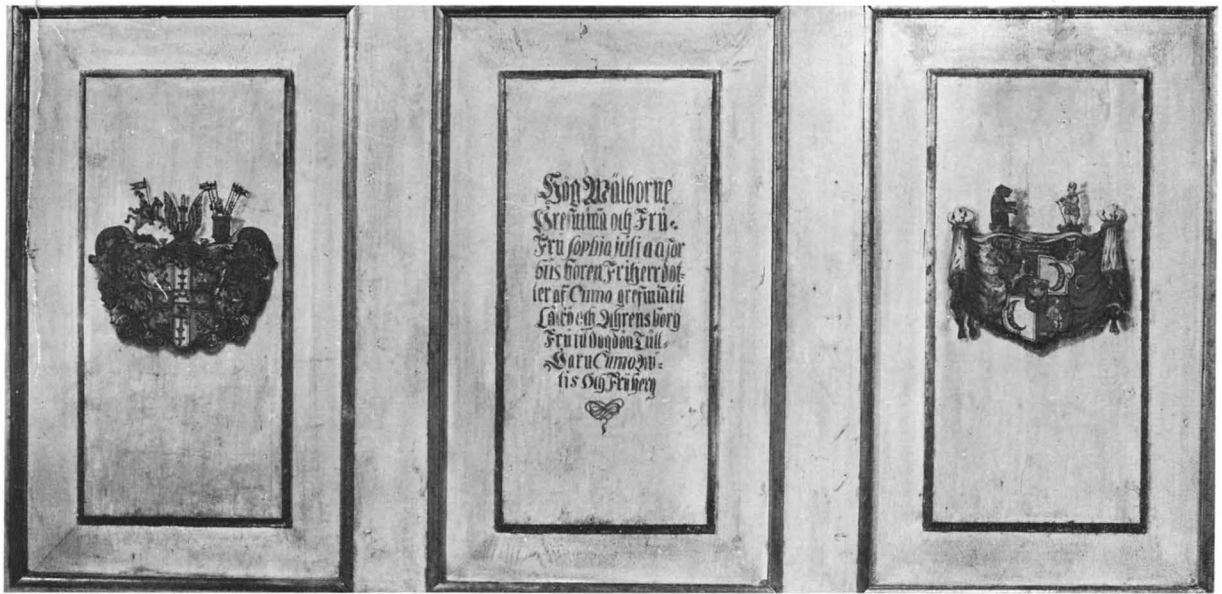 Hög Wälborne
Grefwinnā och Frü-
Frü sophia juli a a ffor
büs boren Friherr dot-
ter af Cumo grefwinnā til
Läckö och Ahrensborg
Frü til
Garn Cumo
tis Och Früherg